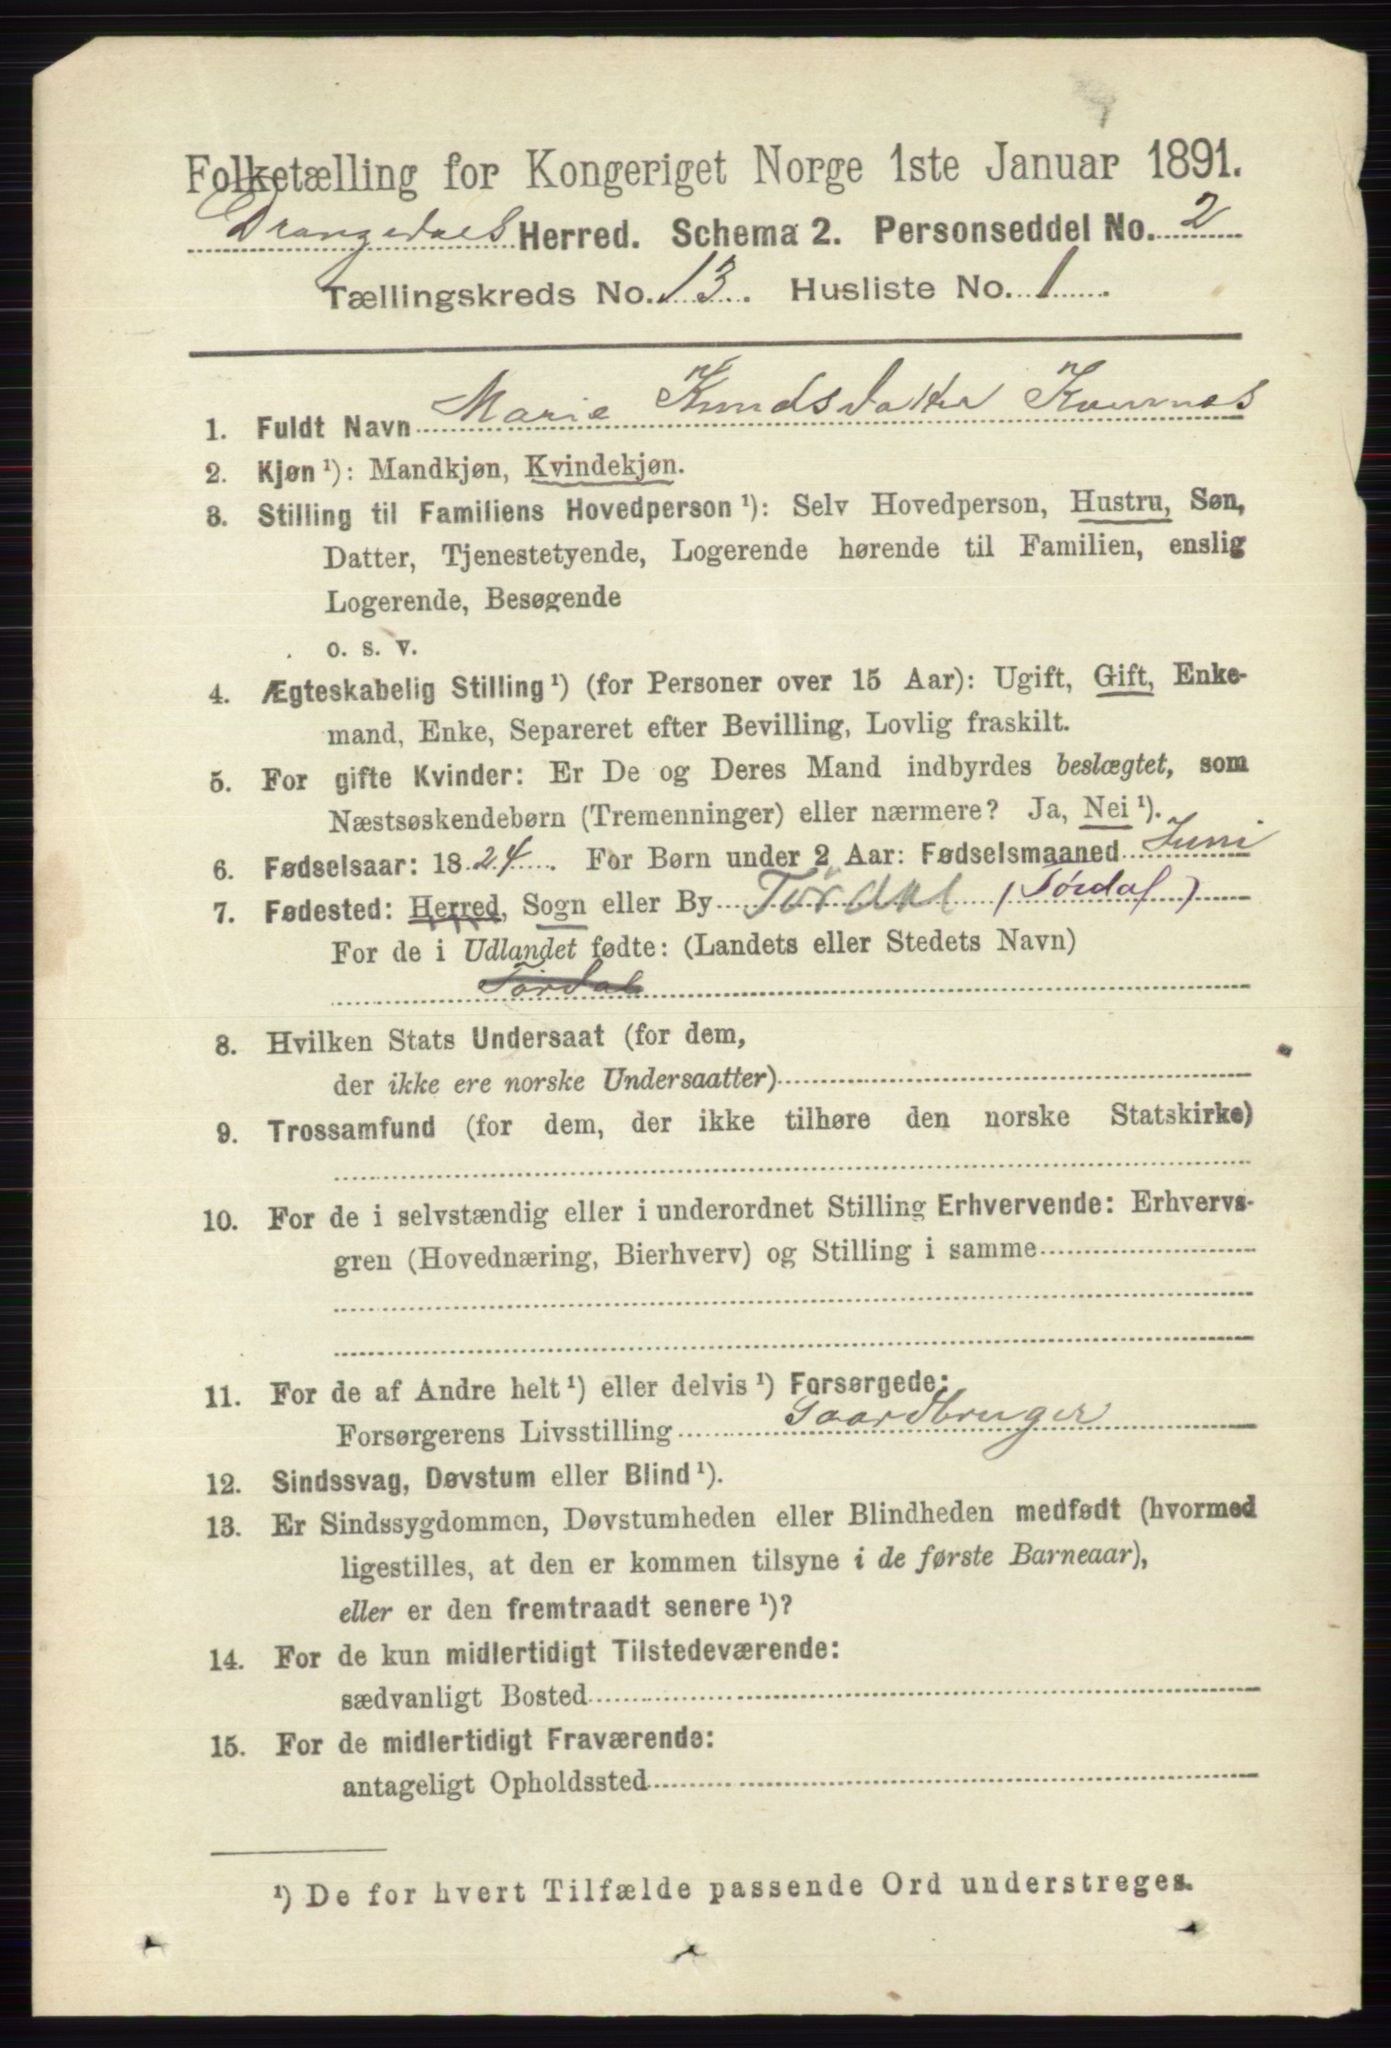 Folketælling for Kongeriget Norge 1ste Januar 1891.
Drangedals Herred. Schema 2. Personseddel No. 2
Tællingskreds No. 13. Husliste No. 1.
1. Fuldt Navn Marie Knudsdatter
2. Kjøn ¹): Mandkjøn, Kvindekjøn.
3. Stilling til Familiens Hovedperson ¹): Selv Hovedperson, Hustru, Søn,
Datter, Tjenestetyende, Logerende hørende til Familien, enslig
Logerende, Besøgende
o. s. v.
4. Ægteskabelig Stilling ¹) (for Personer over 15 Aar): Ugift, Gift, Enke-
mand, Enke, Separeret efter Bevilling, Lovlig fraskilt.
5. For gifte Kvinder: Er De og Deres Mand indbyrdes beslægtet, som
Næstsøskendebørn (Tremenninger) eller nærmere? Ja, Nei ¹).
6. Fødselsaar: 1824. For Børn under 2 Aar: Fødselsmaaned Juni
7. Fødested: Herred, Sogn eller By Tørdal (Tørdal)
For de i Udlandet fødte: (Landets eller Stedets Navn)
Tørdal
8. Hvilken Stats Undersaat (for dem,
der ikke ere norske Undersaatter)
9. Trossamfund (for dem, der ikke tilhøre den norske Statskirke)
10. For de i selvstændig eller i underordnet Stilling Erhvervende: Erhvervs-
gren (Hovednæring, Bierhverv) og Stilling i samme
11. For de af Andre helt ¹) eller delvis ¹) Forsørgede:
Forsørgerens Livsstilling Gaardbruger
12. Sindssvag, Døvstum eller Blind ¹).
13. Er Sindssygdommen, Døvstumheden eller Blindheden medfødt (hvormed
ligestilles, at den er kommen tilsyne i de første Barneaar),
eller er den fremtraadt senere ¹)?
14. For de kun midlertidigt Tilstedeværende:
sædvanligt Bosted
15. For de midlertidigt Fraværende:
antageligt Opholdssted
¹) De for hvert Tilfælde passende Ord understreges.